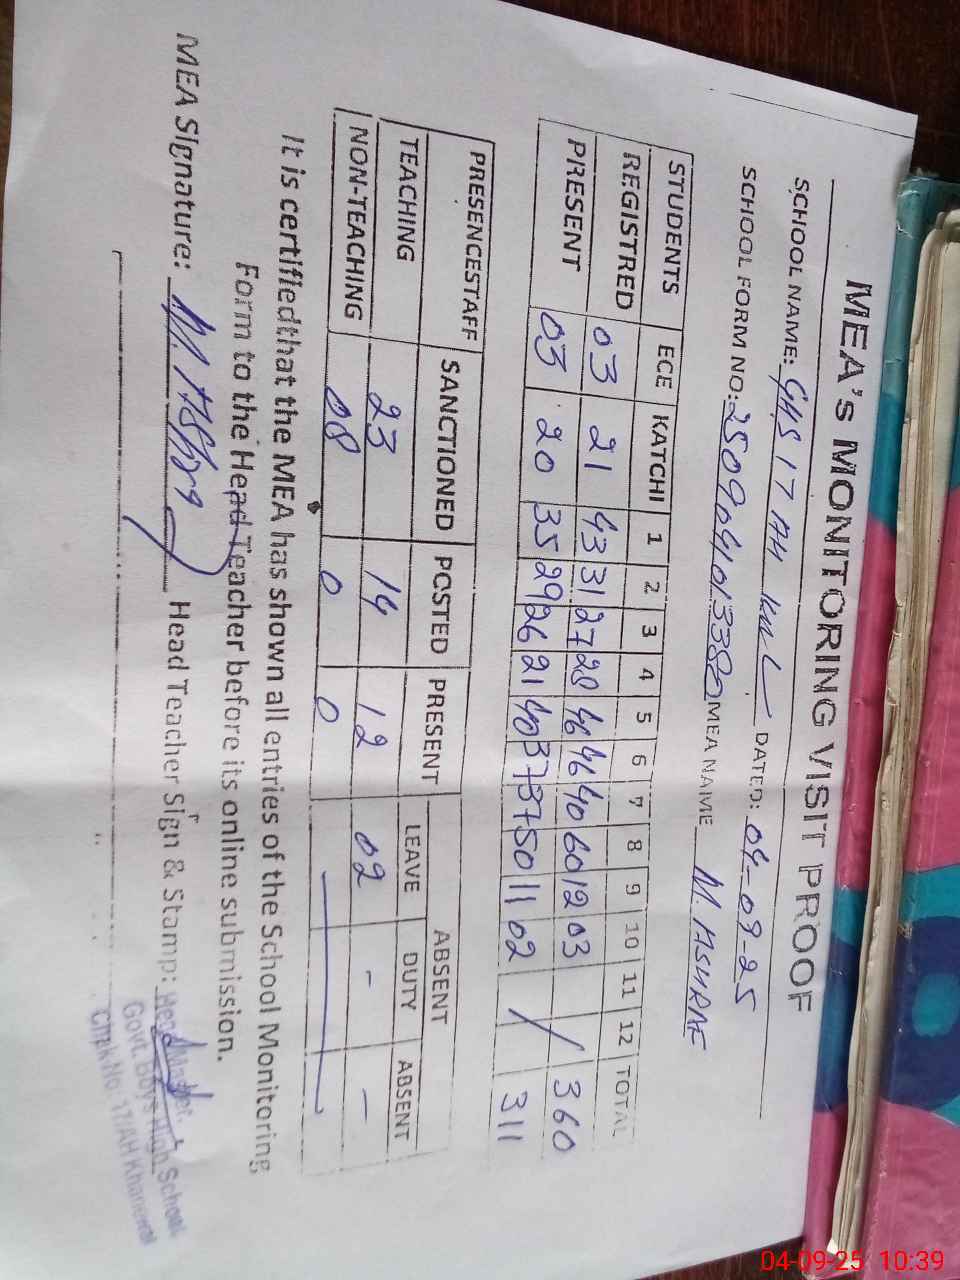 MEA's MONITORING VISIT PROOF
SCHOOL NAME: GHS 17 AH KWL DATED: 04-09-25
SCHOOL FORM NO: 2509040101338 MEA NAME M. ASHRAF
STUDENTS ECE KATCHI 1 2 3 4 5 6 7 8 9 10 11 12 TOTAL
REGISTRED 03 21 43 31 27 28 46 46 40 60 12 03 / 360
PRESENT 03 20 35 29 26 21 40 37 37 50 11 02 / 311
PRESENCESTAFF SANCTIONED POSTED PRESENT ABSENT
LEAVE DUTY ABSENT
TEACHING 23 14 12 02 - -
NON-TEACHING 08 0 0
It is certifiedthat the MEA has shown all entries of the School Monitoring
Form to the Head Teacher before its online submission.
MEA Signature: M. Ashraf Head Teacher Sign & Stamp: Head Master
Govt. Boys High School
Chak No. 17/AH Khanewal
04-09-25 10:39